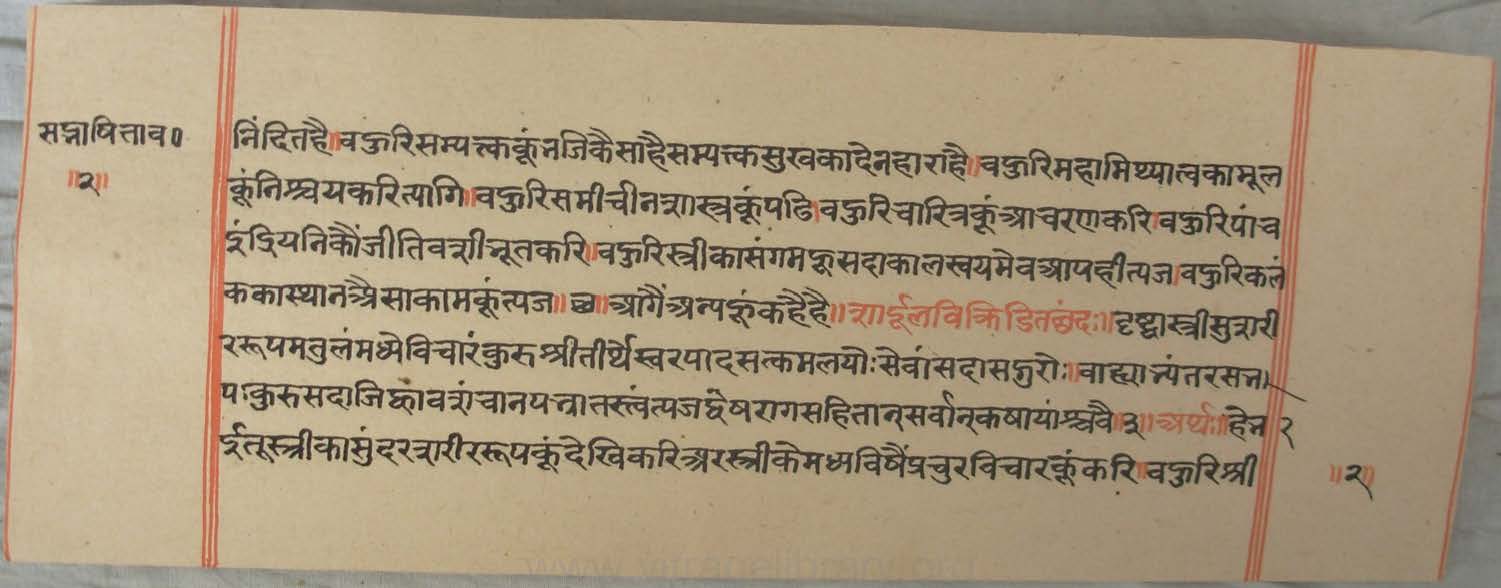 सद्भाषिताव०
॥२॥
निंदितहै॥वहुरिसम्यत्त्ककूंभजिकैसाहैसम्यत्त्कसुखकादेनहाराहै॥वहुरिमहामिथ्यात्वकामूल
कूंनिश्चयकरित्यागि॥वहुरिसमीचीनशास्त्रकूंपढि।वहुरिचारित्रकूंआचरणकरि।वहुरिपांच
इंद्रियनिकौंजीतिवशीभूतकरि।वहुरिस्त्रीकासंगमकूसदाकालस्वयमेवआपहीत्यज।वहुरिकलं
ककास्थानअैसाकामकूंत्यज॥छ॥आगैंअन्यकूंकहैहै॥शार्दूलविक्रिडितछंदः॥दृष्ट्वास्त्रीसुशरी
ररूपमतुलंमध्येविचारंकुरुश्रीतीर्थेस्वरपादसत्कमलयोःसेवांसदासद्गुरोः।वाह्याभ्यंतरसत्त
पःकुरुसदाजिह्वावशंचानयभ्रातस्त्वंत्यजद्वेषरागसहितान्सर्वान्कषायांश्चवै॥३॥अर्थः॥हेभ्रा
२
ईतूस्त्रीकासुंदरशरीररूपकूंदेखिकरिअरस्त्रीकेमध्यविषैंप्रचुरविचारकूंकरि।वहुरिश्री
॥२॥